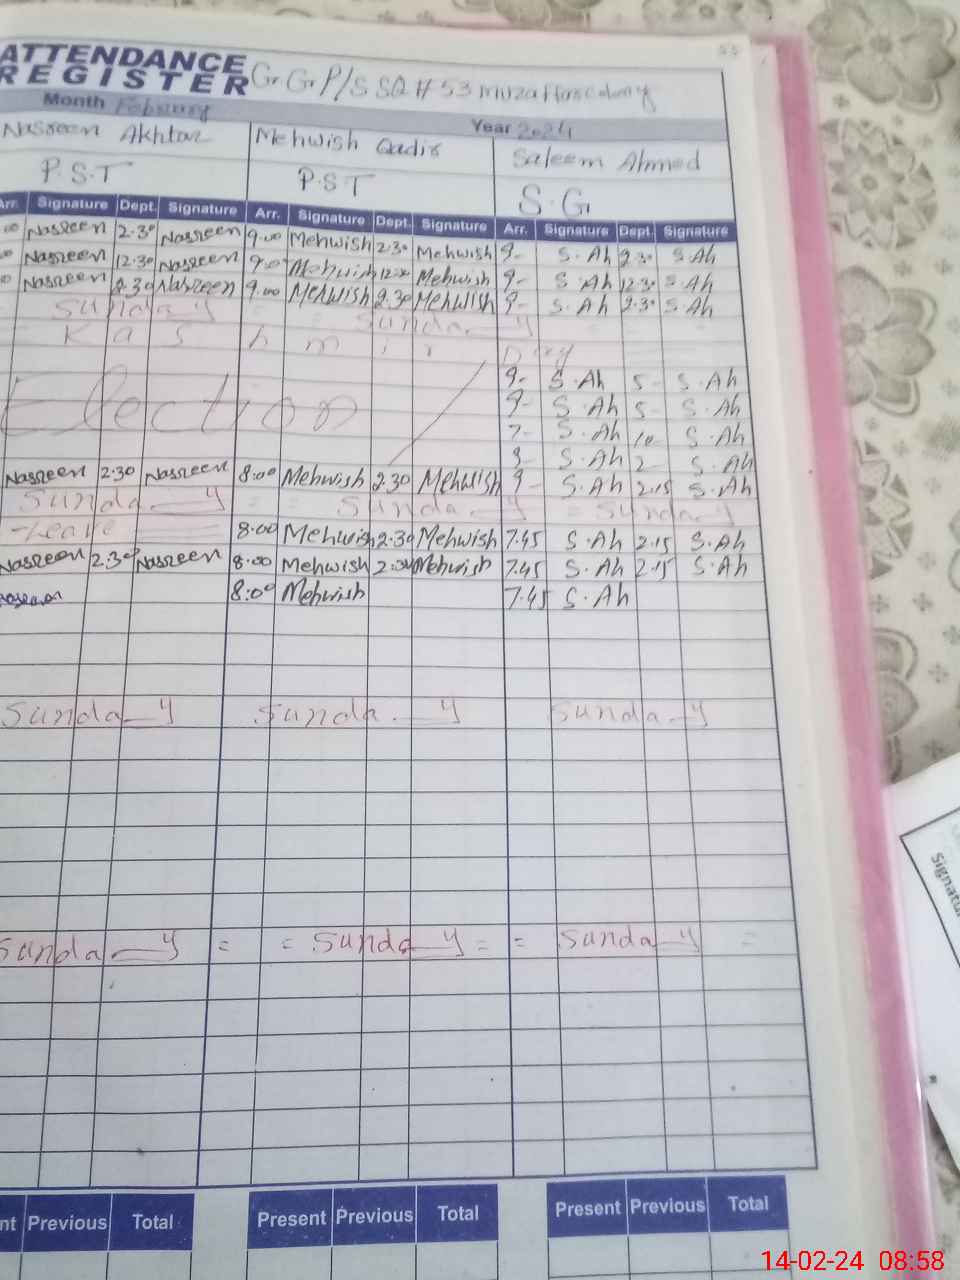 ATTENDANCE
REGISTER G.G.P/S SQ # 53 muzaffar colony
Month February Year 2024
Nasreen Akhtar Mehwish Qadir Saleem Ahmed
P.S.T P.S.T S.G
Arr. Signature Dept. Signature Arr. Signature Dept. Signature Arr. Signature Dept. Signature
00 Nasreen 2.30 Nasreen 9.00 Mehwish 2.30 Mehwish 9- S.Ah 2.30 S.Ah
0 Nasreen 12.30 Nasreen 9.00 Mehwish 12.30 Mehwish 9- S.Ah 12.30 S.Ah
0 Nasreen 2.30 Nasreen 9.00 Mehwish 2.30 Mehwish 9- S.Ah 2.30 S.Ah
Sunda—y = = Sunda—y
Kashmir Day
9- S.Ah 5- S.Ah
Election 9- S.Ah 5- S.Ah
7- S.Ah 10 S.Ah
8 S.Ah 2 S.Ah
Nasreen 2.30 Nasreen 8:00 Mehwish 2.30 Mehwish 9- S.Ah 2.15 S.Ah
Sunda—y = = Sunda—y = Sunda—y
-Leave 8.00 Mehwish 2.30 Mehwish 7.45 S.Ah 2.15 S.Ah
Nasreen 2.30 Nasreen 8.00 Mehwish 2.30 Mehwish 7.45 S.Ah 2.15 S.Ah
8:00 Mehwish 7.45 S.Ah
Sunda—y Sunda—y Sunda—y
Sunda—y = = Sunda—y = = Sunda—y =
nt Previous Total Present Previous Total Present Previous Total
Signatu
14-02-24 08:58